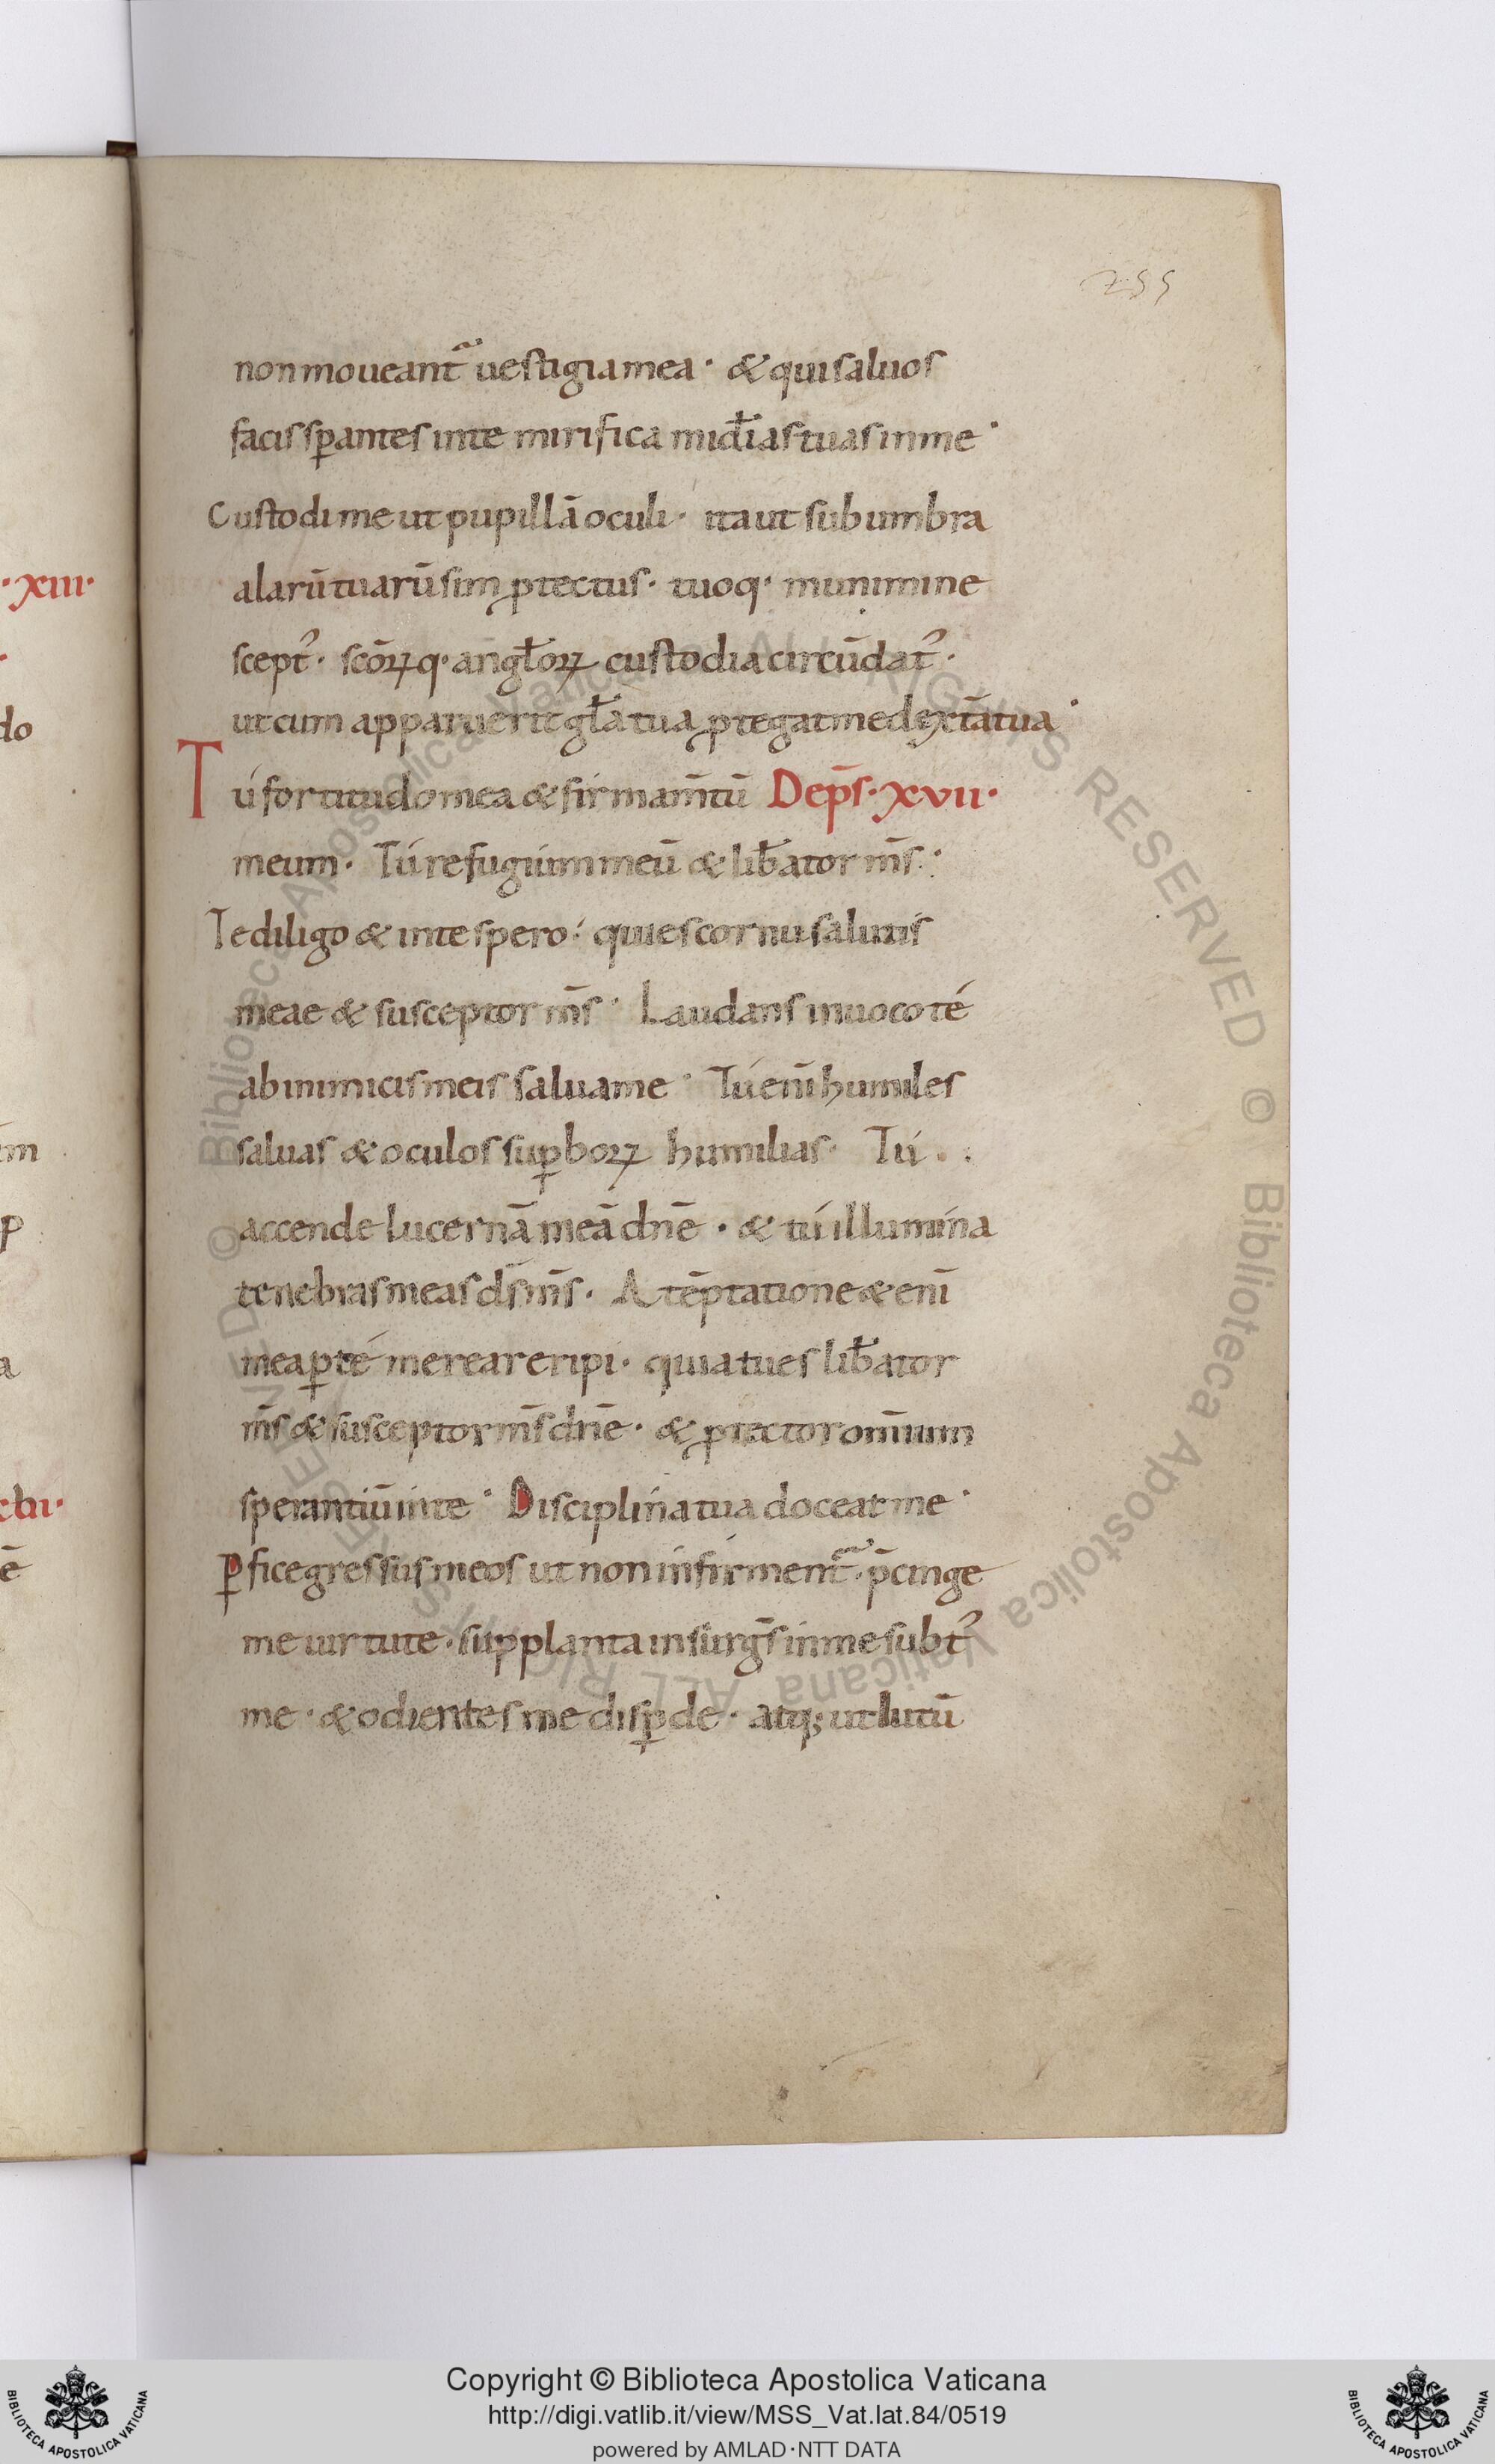 255
non moueant᷑ uestigia mea · & qui saluos
facis sꝑantes in te mirifica mid̄ias tuas in me ·
Custodi me ut pupillā oculi · ita ut sub umbra
alarū tuarū sim ꝓtectus · tuoq· munimine
sceptꝰ · scōꝝq· angl̄oꝝ custodia circūdatꝰ ·
ut cum apparuerit gl̄a tua ꝓtegat me dext̄a tua ·
Tú fortitudo mea & firmam̄tū De p̄s · xvii ·
meum · Tú refugium meū & lib̄ator m̄s :
Te diligo & in te spero : qui es cornu salutis
meae & susceptor m̄s · Laudans inuoco té
ab inimicis meis salua me · Tú enī humiles
saluas & oculos suꝑboꝝ humilias · Tú . .
accende lucernā meā dn̄e · & tú illumina
tenebras meas d̄s m̄s · A tēptatione & enī
mea ꝑ té merear eripi · quia tu es lib̄ator
m̄s & susceptor m̄s dn̄e · & ꝓtector om̄ium
sperantiū in te · Disciplina tua doceat me ·
Ꝑfice gressus meos ut non infirment᷑ · p̄cinge
me uirtute · supplanta insurḡs in me subtꝰ
me · & odientes me disꝑde · atq; ut lutū
· xiii ·
do
p
a
ē
Copyright © Biblioteca Apostolica Vaticana
http://digi.vatlib.it/view/MSS_Vat.lat.84/0519
powered by AMLAD·NTT DATA
BIBLIOTECA APOSTOLICA VATICANA
BIBLIOTECA APOSTOLICA VATICANA
© Biblioteca Apostolica Vaticana ALL RIGHTS RESERVED © Biblioteca Apostolica Vaticana ALL RIGHTS RESERVED